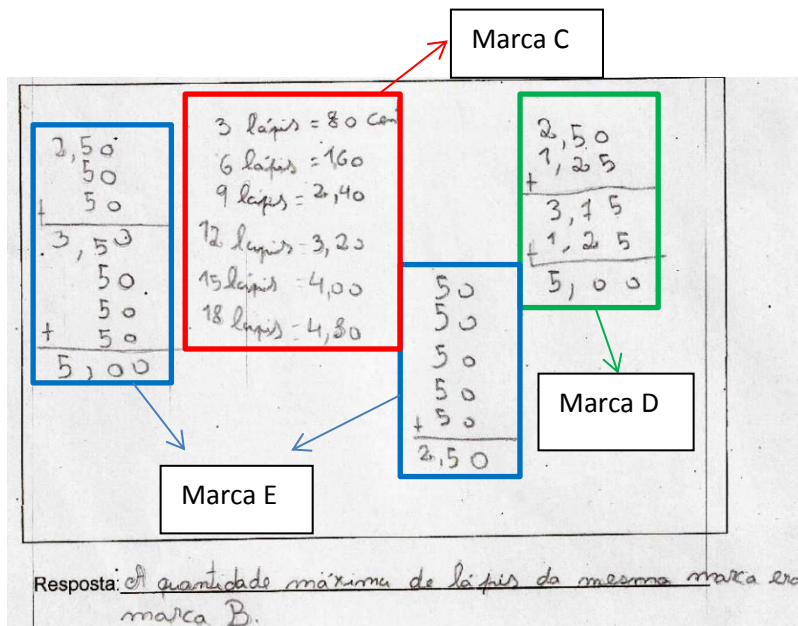 Marca C
2,50
50
+ 50
3,50
50
50
+ 50
5,00
3 lápis = 80 cen
6 lápis = 1,60
9 lápis = 2,40
12 lapis = 3,20
15 lápis = 4,00
18 lapis = 4,80
50
50
50
50
+ 50
2,50
2,50
1,25
+
3,75
+ 1,25
5,00
Marca D
Marca E
Resposta: A quantidade máxima de lápis da mesma marca era
marca B.